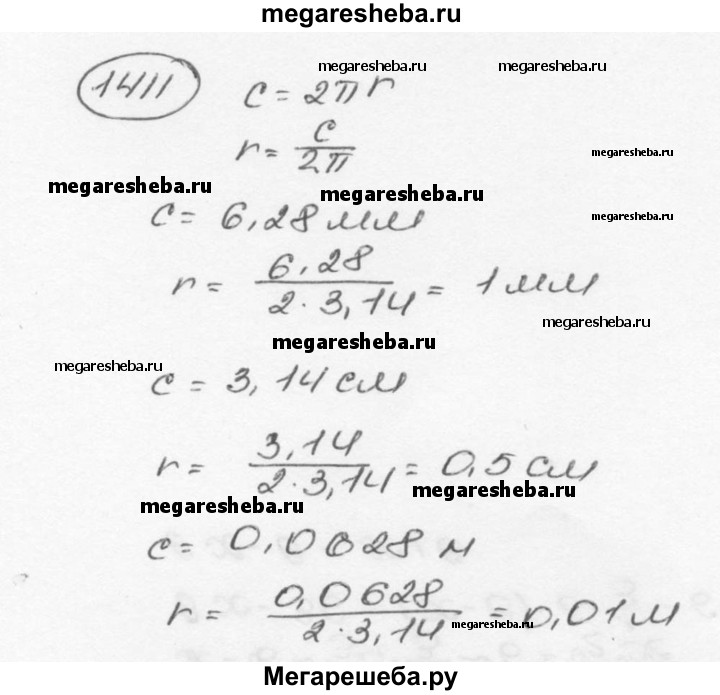 megaresheba.ru
megaresheba.ru megaresheba.ru
1411 c = 2πr
r = c/2π megaresheba.ru
megaresheba.ru megaresheba.ru
c = 6,28 мм megaresheba.ru
r = 6,28/2·3,14 = 1 мм
megaresheba.ru
megaresheba.ru
megaresheba.ru
c = 3,14 см
r = 3,14/2·3,14 = 0,5 см
megaresheba.ru
megaresheba.ru
c = 0,0628 м
r = 0,0628/2·3,14 = 0,01 м
megaresheba.ru
Мегарешеба.ру